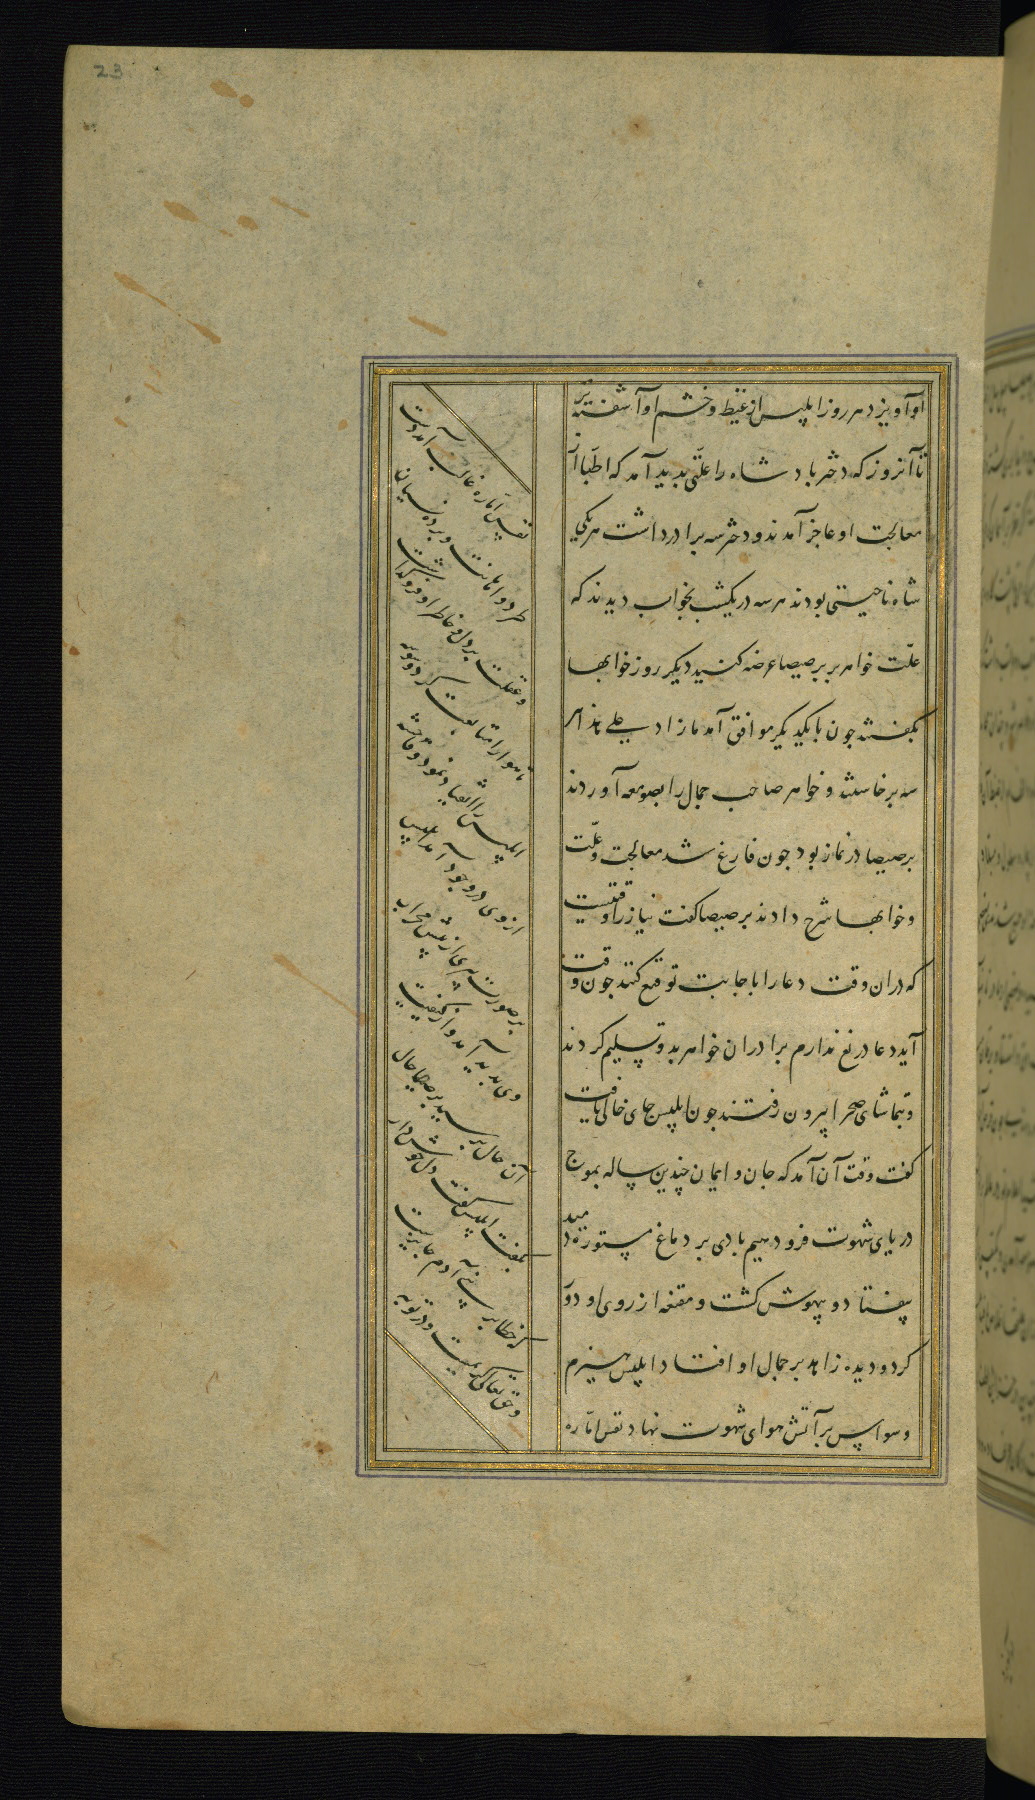 23
او آویزد هر روز ابلیس از غیظ و خشم او آشفته تر
تا آنروز که دختر پادشاه را علّتی پدید آمد که اطبّا از
معالجت او عاجز آمدند و دختر سه برادر داشت هر یکی
شاه ناحیتی بودند هر سه در یکشب بخواب دیدند که
علّت خواهر بر برصیصا عرضه کنید دیگر روز خوابها
بگفتند چون با یکدیگر موافق آمد
سه برخاستند و خواهر صاحب جمال را بصومعه آوردند
برصیصا در نماز بود چون فارغ شد معالجت و علّت
و خوابها شرح دادند برصیصا گفت نیاز را وقتیست
که در آن وقت دعا را باجابت توقع کنند چون وقت
آید دعا دریغ ندارم برادران خواهر بدو تسلیم کردند
و بتماشای صحرا بیرون رفتند چون ابلیس جای خالی یافت
گفت وقت آن آمد که جان و ایمان چندین ساله بموج
دریای شهوت فرو دهیم بادی بر دماغ مستوره دمید
بیفتاد و بیهوش گشت و مقنعه از روی او دور
کرد و دیده زاهد بر جمال او افتاد ابلیس هیزم
وسواس بر آتش هوای شهوت نهاد نفس امّاره
نفس امّاره غالب آمد
طرد و اهانت و پرده نسیان
و غفلت بر دل و خاطر او فرو گذاشت
تا هوا را متابعت کرد و
ابلیس را انقیاد نمود و فاحشه
از وی در وجود آمد ابلیس
بر صورت پیری از پیش محراب
وی پدید آمد و از کیفیت
آن حال پرسید برصیصا حال
بگفت ابلیس گفت دل خوش دار
که خطا بر بنی آدم جایزست
و حق تعالی کریمست و در توبه